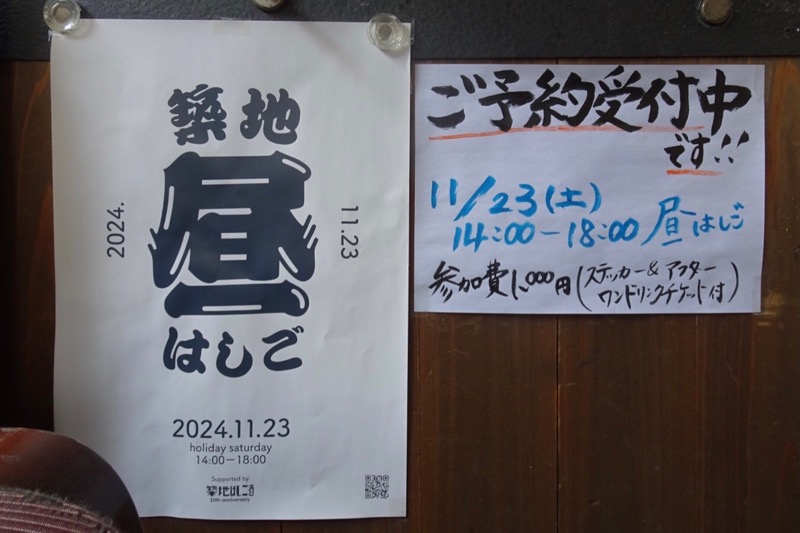 築地
昼
はしご
2024.
11.23
2024.11.23
holiday saturday
14:00ー18:00
Supported by
築地はしご酒
10th anniversary
ご予約受付中
です!!
11/23(土)
14:00-18:00 昼はしご
参加費1,000円(ステッカー&アフター
ワンドリンクチケット付)